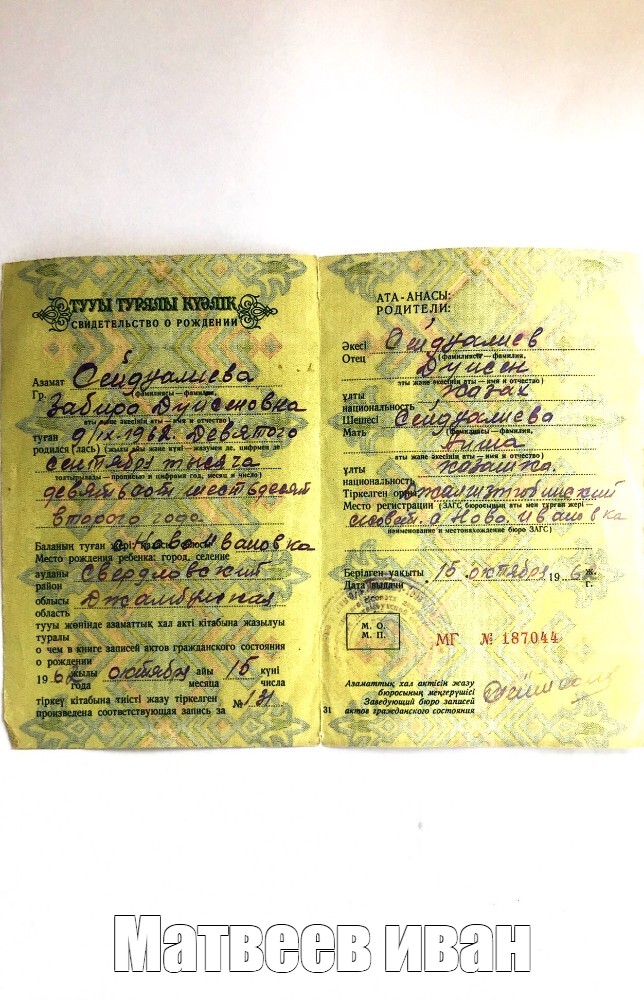 ТУУЫ ТУРАЛЫ КУӘЛІК
СВИДЕТЕЛЬСТВО О РОЖДЕНИИ
Азамат Сейдуалиева
Гр. (фамилиясы — фамилия,
Забира Дуйсеновка
аты және әкесінің аты — имя и отчество)
туған 9/IX-1962. Девятого
родился (лась) (жылы айы және күні — жазумен де, цифрмен де
сентября тысяча
толтырылады — прописью и цифрами год, месяц и число)
девятьсот шестьдесят
второго года
Баланың туған жері: с. Ново Ивановка
Место рождения ребенка: город, селение
ауданы Свердловский
район
облысы Джамбулская
область
тууы жөнінде азаматтық хал акті кітабына жазылуы
туралы
о чем в книге записей актов гражданского состояния
о рождении
1962 жылы октября айы 15 күні
года месяца числа
тіркеу кітабына тиісті жазу тіркелген
произведена соответствующая запись за № 131
АТА-АНАСЫ:
РОДИТЕЛИ:
Әкесі Сейдуалиев
Отец (фамилиясы — фамилия,
Дуйсен
аты және әкесінің аты — имя и отчество)
ұлты казак
национальность
Шешесі Сейдуалиева
Мать (фамилиясы — фамилия,
аты және әкесінің аты — имя и отчество)
ұлты казашка.
национальность
Тіркелген орны
Место регистрации (ЗАГС бюросының аты мен тұрған жері —
с/совет. с Ново. Ивановка
наименование и местонахождение бюро ЗАГС)
Берілген уақыты 15 октября 196 ж.
Дата выдачи г.
М. О.
М. П.
МГ № 187044
Азаматтық хал актісін жазу
бюросының меңгерушісі
Заведующий бюро записей
актов гражданского состояния
31
Матвеев иван